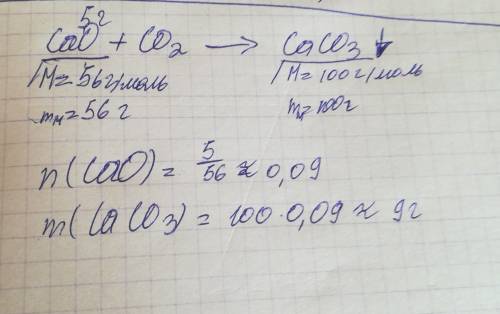 5г
CaO + CO₂ ⟶ CaCO₃ ↓
M = 56 г/моль M = 100 г/моль
mм = 56 г m = 100г
n(CaO) = 5/56 ≈ 0,09
m(CaCO₃) = 100 · 0,09 ≈ 9г